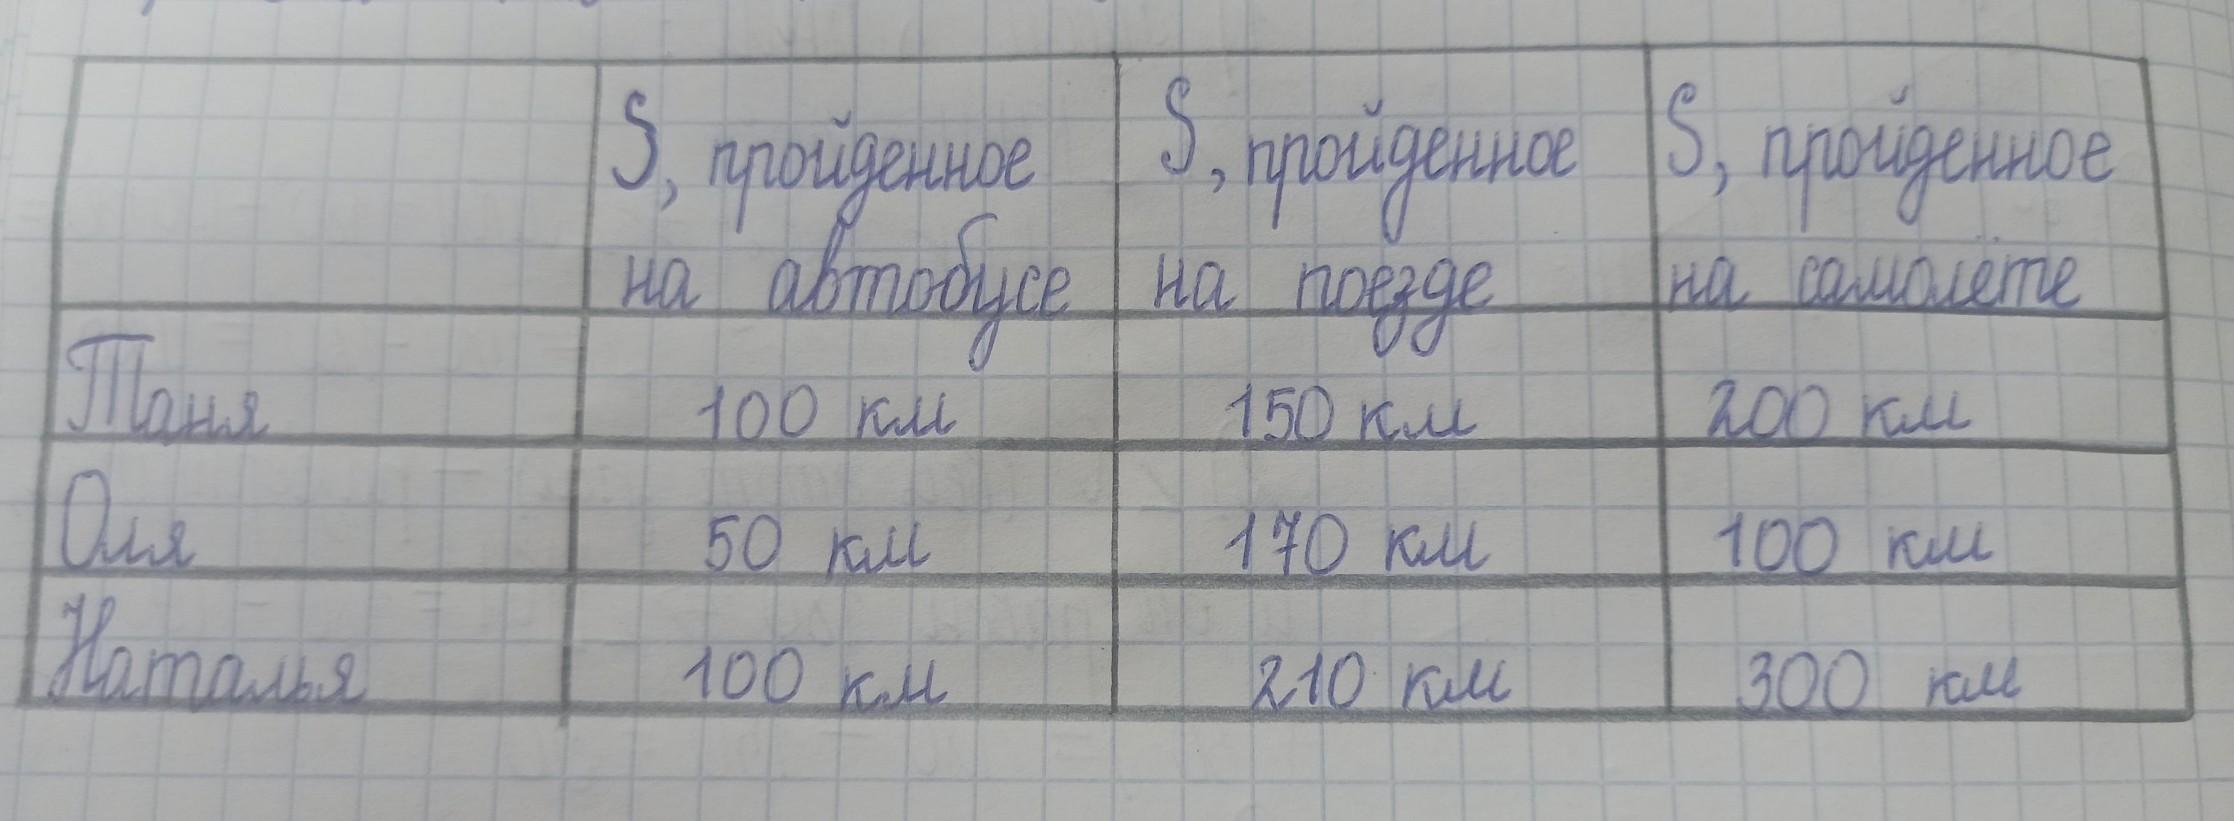 S, пройденное S, пройденное S, пройденное
на автобусе на поезде на самолёте
Таня 100 км 150 км 200 км
Оля 50 км 170 км 100 км
Наталья 100 км 210 км 300 км